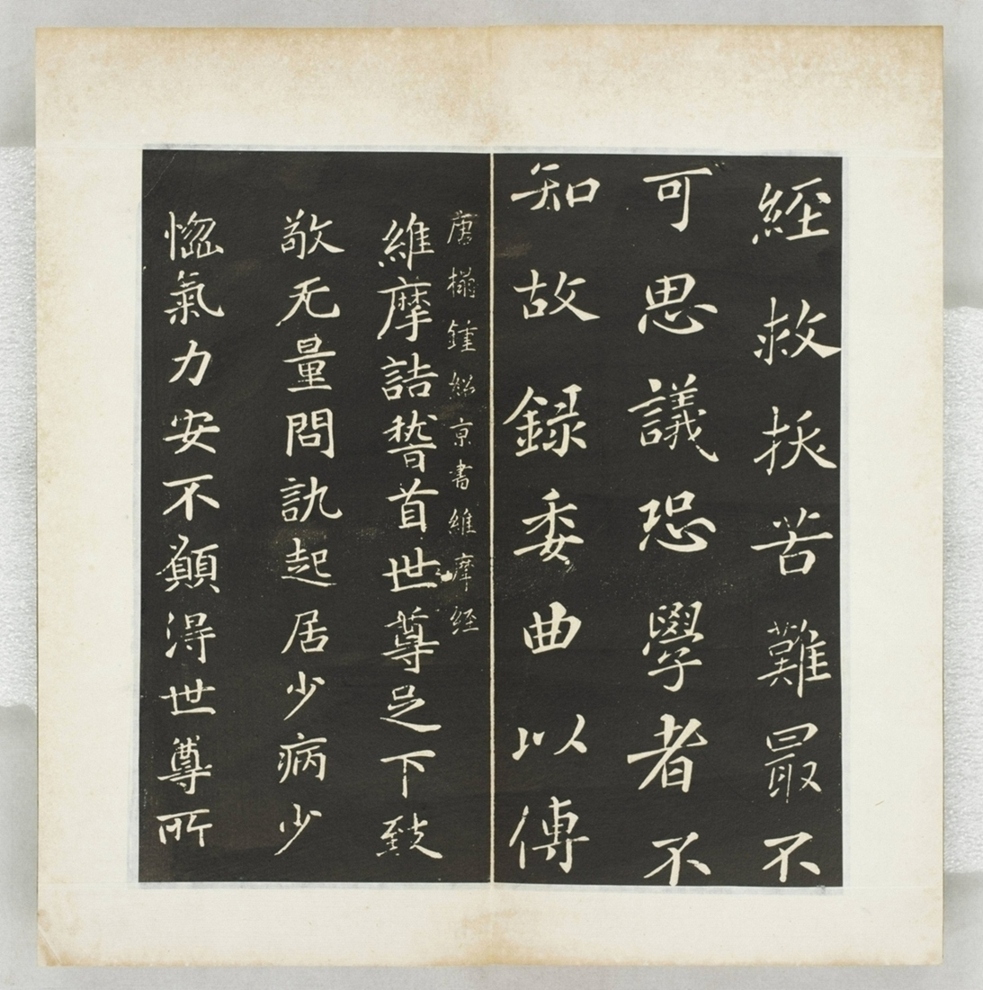 經救拔苦難最不
可思議恐學者不
知故録委曲以傳
唐榻鍾紹京書維摩經
維摩詰稽首世尊足下致
敬无量問訊起居少病少
惱氣力安不願得世尊所